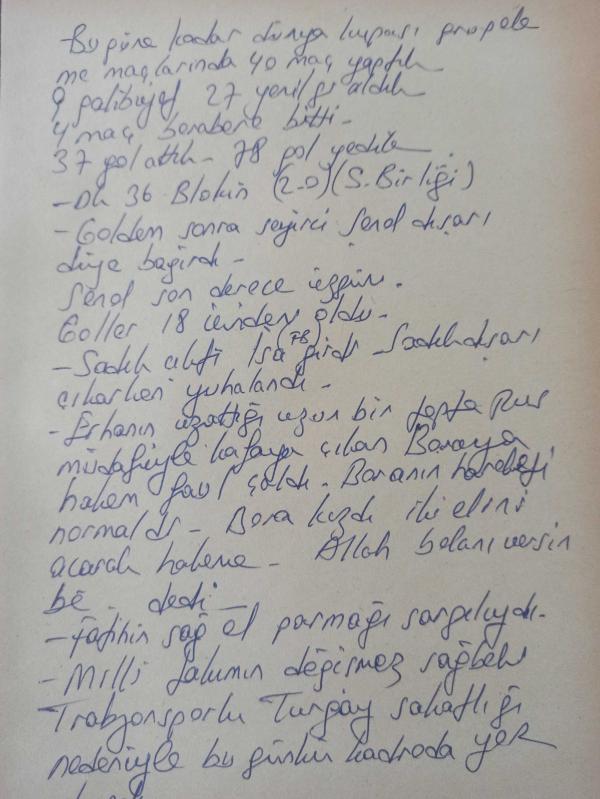 Bu güne kadar dünya kupası propele
me maçlarında 40 maç yaptık
9 galibiyet 27 yenilgi aldık
4 maç berabere bitti-
37 gol attık- 78 gol yedik
-Dk 36 Blokin (2-0) (S.Birliği)
-Golden sonra seyirci Şenol dışarı
diye bağırdı-
Şenol son derece üzgün.
Goller 18 içinden oldu-
-Sadık çıktı İsa (78) girdi - Sadık dışarı
çıkarken yuhalandı-
-Erhanın uzattığı uzun bir topta Rus
müdafiiyle kafaya çıkan Boraya
hakem faul çaldı. Boranın hareketi
normaldi- Bora kızdı iki elini
açarak hakeme- Allah belanı versin
be. dedi-
-Fatihin sağ el parmağı sargılıydı-
-Milli takımın değişmez sağbeki
Trabzonsporlu Turgay sakatlığı
nedeniyle bu günkü kadroda yer